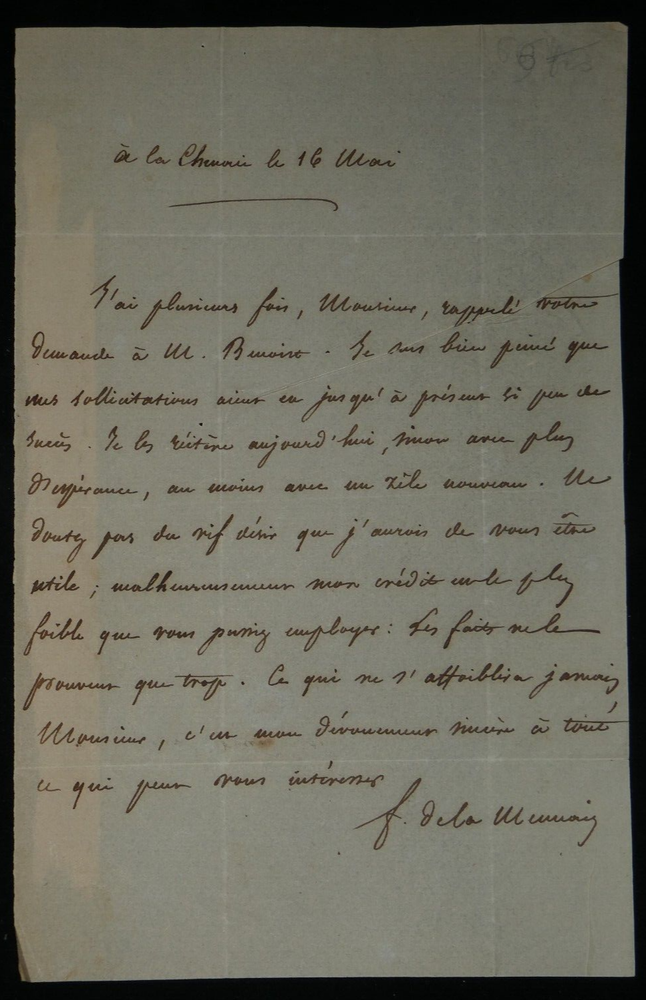 à la Chenaie le 16 Mai
J'ai plusieurs fois, Monsieur, rappelé votre
demande à M. Benoist. Je suis bien peiné que
mes sollicitations aient eu jusqu'à présent si peu de
succès. Je les réitère aujourd'hui, sinon avec plus
d'espérance, au moins avec un zèle nouveau. Ne
doutez pas du vif désir que j'aurois de vous être
utile ; malheureusement mon crédit est le plus
foible que vous puissiez employer : les faits ne le
prouvent que trop. Ce qui ne s'affoiblira jamais
Monsieur, c'est mon dévouement sincère à tout
ce qui peut vous intéresser
f. de la Mennais